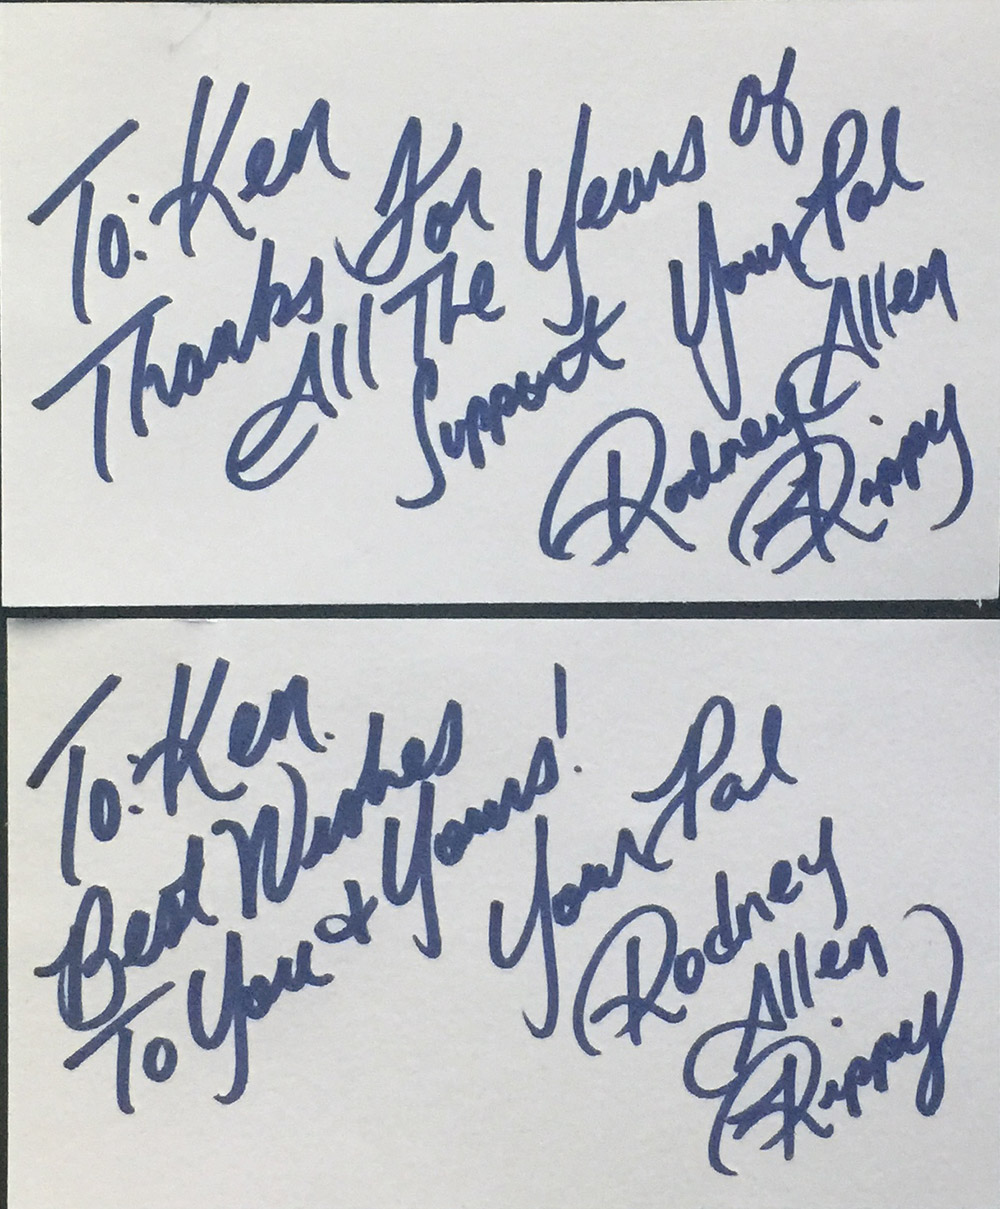 To: Ken
Thanks For
All The Years of
Support Your Pal
Rodney Allen
Rippy
To: Ken.
Best Wishes
To You & Yours!
Your Pal
Rodney
Allen
Rippy